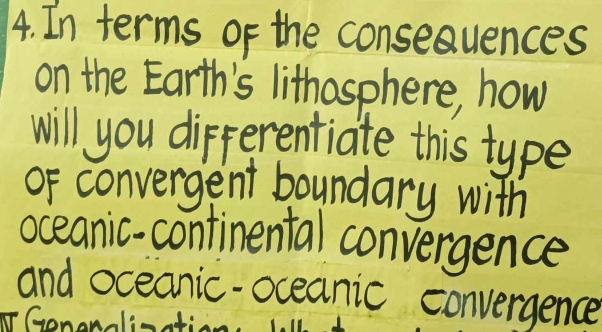 4. In terms of the consequences
on the Earth's lithosphere, how
will you differentiate this type
of convergent boundary with
oceanic-continental convergence
and oceanic-oceanic convergence
IV Generalization: